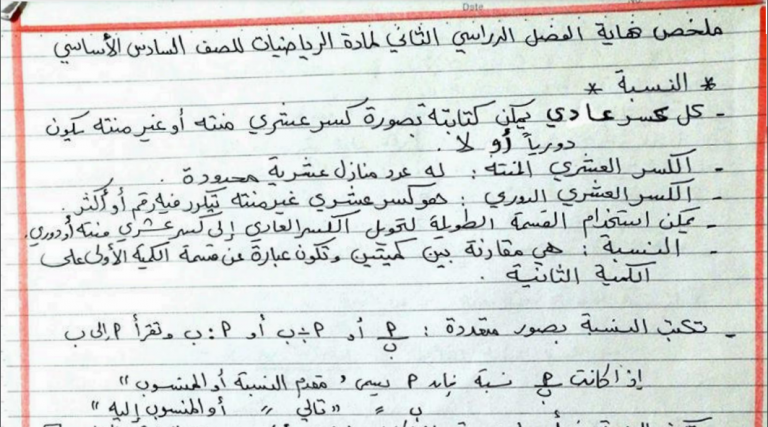 Date
ملخص نهاية الفصل الدراسي الثاني لمادة الرياضيات للصف السادس الأساسي
* النسبة *
- كل كسر عادي يمكن كتابته بصورة كسر عشري منته أو غير منته يكون
دورياً أو لا .
- الكسر العشري المنته : له عدد منازل عشرية محدودة .
- الكسر العشري الدوري : هو كسر عشري غير منته يتكرر فيه رقم أو أكثر .
- يمكن استخدام القسمة الطويلة لتحويل الكسر العادي إلى كسر عشري منته أو دوري .
- النسبة : هي مقارنة بين كميتين وتكون عبارة عن قسمة الكمية الأولى على
الكمية الثانية .
- تكتب النسبة بصور متعددة : أ/ب أو أ ÷ ب أو أ : ب وتقرأ أ إلى ب
إذا كانت أ/ب نسبة فإن أ يسمى " مقدم النسبة أو المنسوب "
ب = " تالي " أو المنسوب إليه "